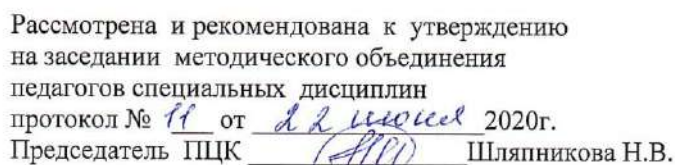 Рассмотрена и рекомендована к утверждению
на заседании методического объединения
педагогов специальных дисциплин
протокол № 11 от 22 июня 2020г.
Председатель ПЦК Шляпникова Н.В.